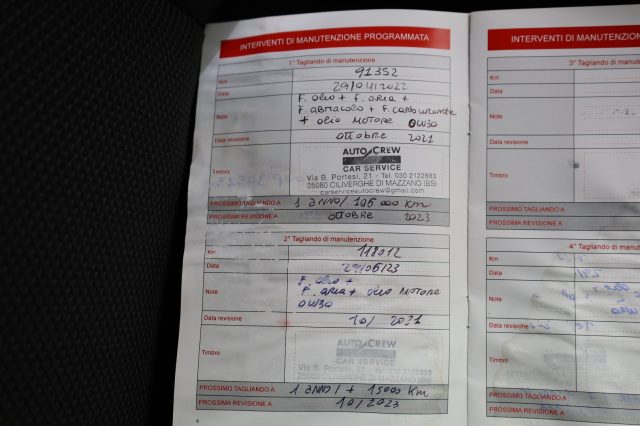 INTERVENTI DI MANUTENZIONE PROGRAMMATA
1° Tagliando di manutenzione
Km 91352
Data 29/04/2022
F. OLIO + F. ARIA +
Note F. ABITACOLO + F. CARBURANTE
+ OLIO MOTORE 0W30
Data revisione OTTOBRE 2021
AUTO CREW
CAR SERVICE
Timbro Via B. Portesi, 21 - Tel. 030 2122883
25080 CILIVERGHE DI MAZZANO (BS)
carserviceautocrew@gmail.com
PROSSIMO TAGLIANDO A 1 ANNO/ 106 000 KM
PROSSIMA REVISIONE A OTTOBRE 2023
2° Tagliando di manutenzione
Km 118012
Data 29/06/23
F. OLIO +
Note F. ARIA + OLIO MOTORE
0W30
Data revisione 10/ 2021
AUTO CREW
CAR SERVICE
Timbro Via B. Portesi, 21 - Tel. 030 2122883
25080 CILIVERGHE DI MAZZANO (BS)
PROSSIMO TAGLIANDO A 1 ANNO/ + 15000 KM
PROSSIMA REVISIONE A 10/2023
4
INTERVENTI DI MANUTENZIONE
3° Tagliando di
Km
Data
Note
Data revisione
Timbro
PROSSIMO TAGLIANDO A
PROSSIMA REVISIONE A
4° Tagliando di
Km
Data
Note
Data revisione
Timbro
PROSSIMO TAGLIANDO A
PROSSIMA REVISIONE A